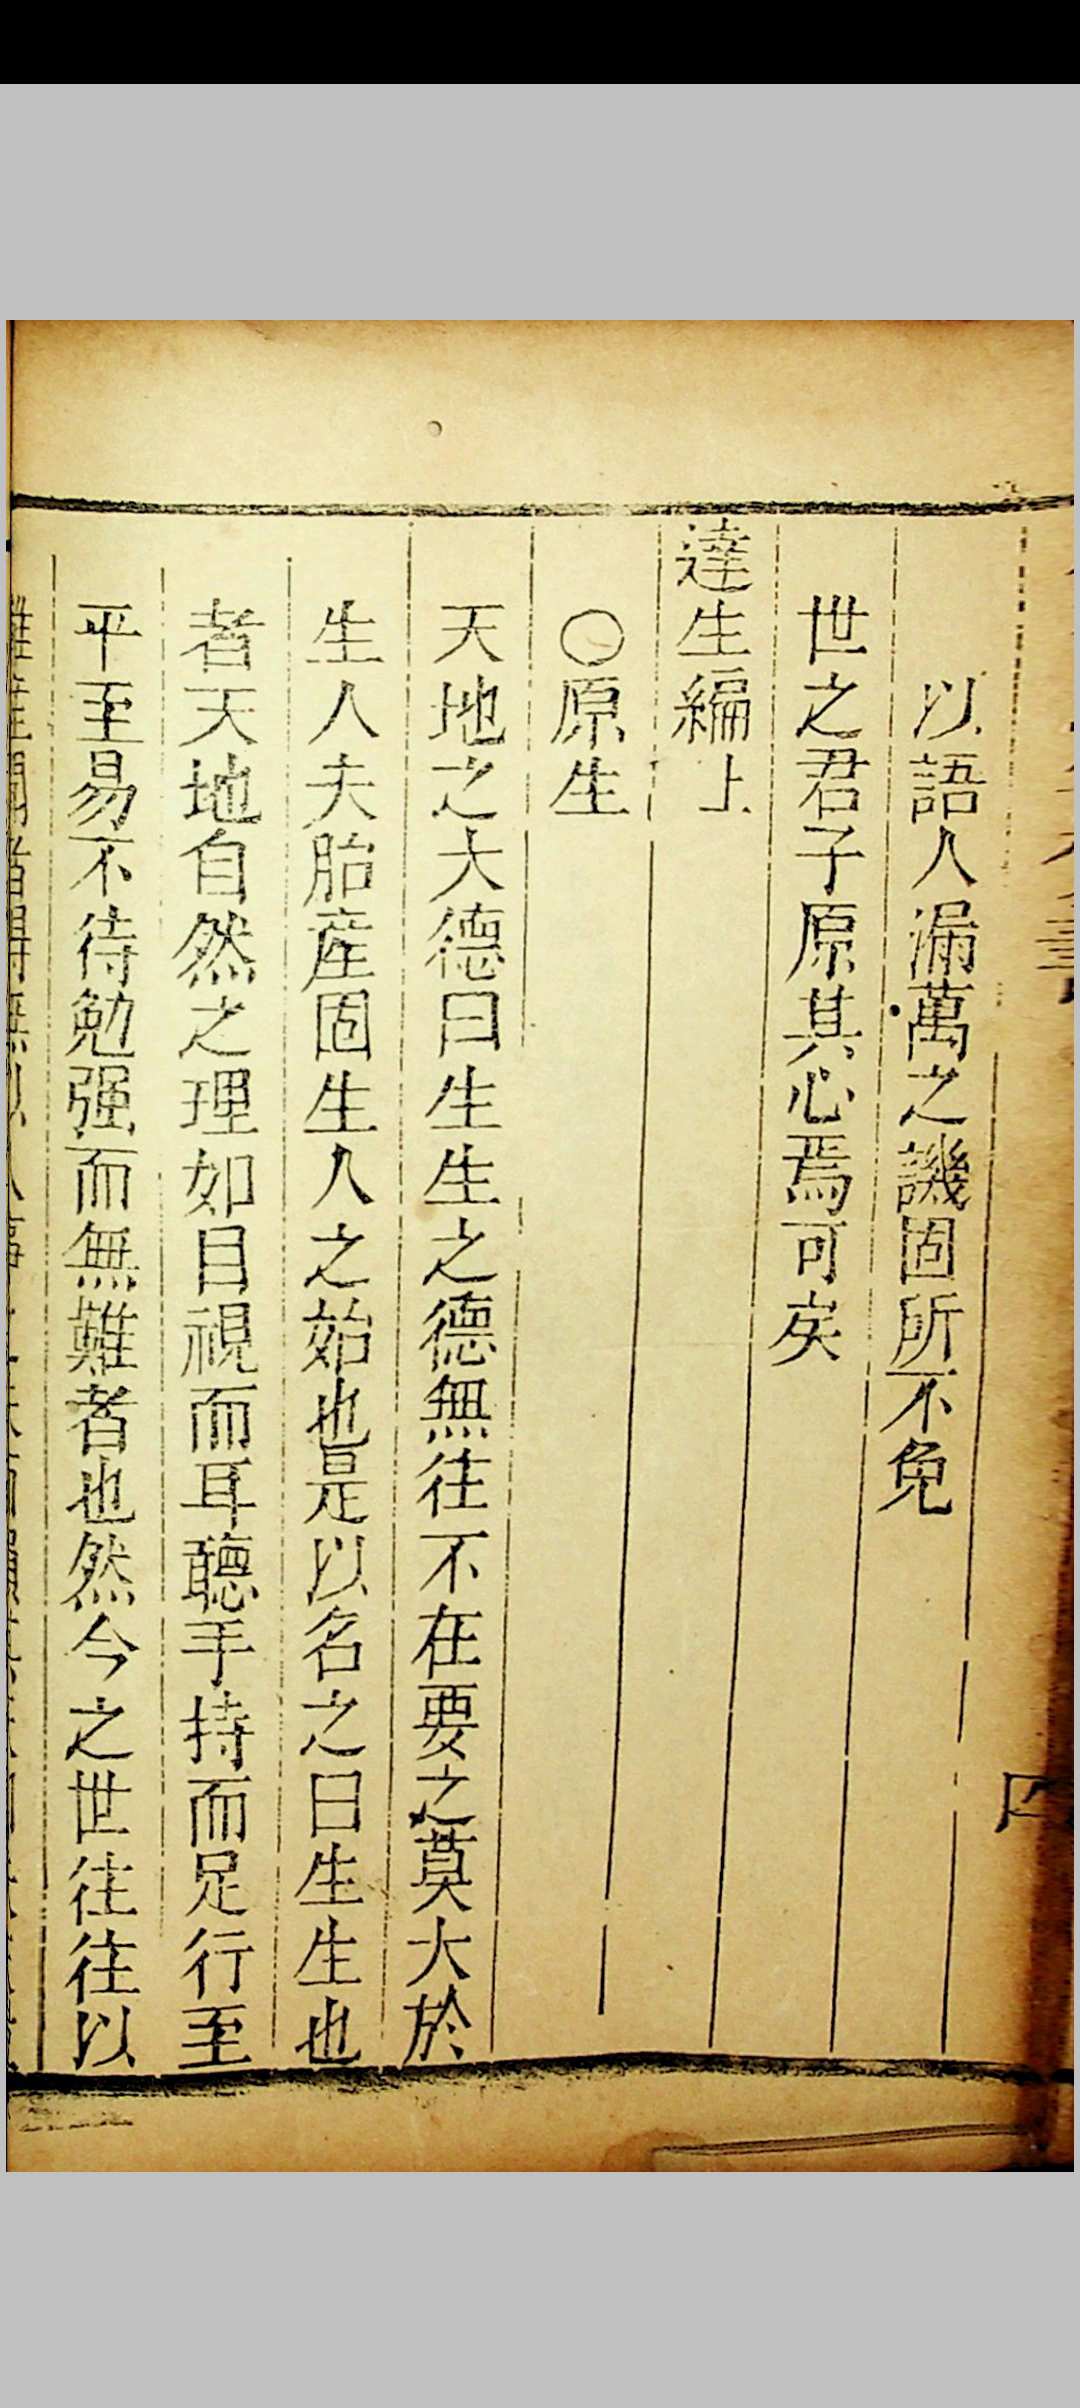 以語人漏萬之譏固所不免
世之君子原其心焉可矣
達生編上
○原生
天地之大德曰生生之德無往不在要之莫大於
生人夫胎產固生人之始也是以名之曰生生也
者天地自然之理如目視而耳聽手持而足行至
平至易不待勉强而無難者也然今之世往往以